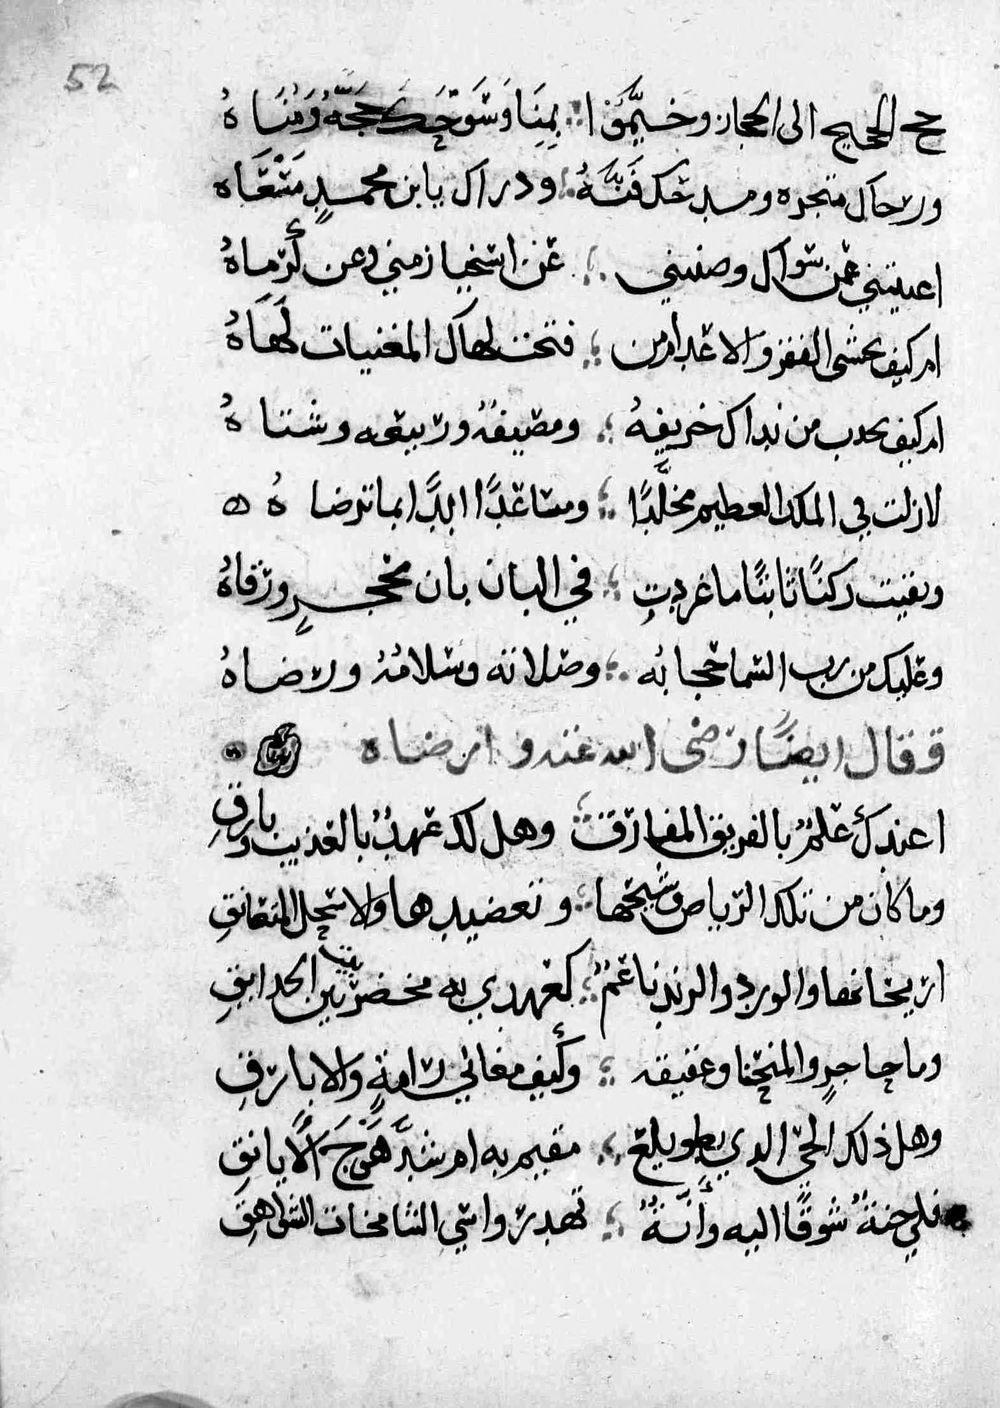 52
حج الحجيج الى الحجاز وخيَّموا بِمِنَا وَشَوْحَك حَجَّهُ وَمُنَاهُ
ورحال متجره ومدحك فَنُّهُ ودراك يا ابن محمدٍ مَتْعَاه
اعييتني عمن سوال وصنتني عن اسخيا زمني وعن لُؤَماهُ
ام كيف يخشى الفقر والاعدام من فتحت لهاك المغنيات لَهَاهُ
ام كيف يجدب من نداك خريفهُ ومصيفهُ وربيعه وشتاهُ
لازلت في الملك العظيم مخلَّدًا ومساعَدًا ابدًا بما ترضاهُ
وبقيت ركنًا ثابتًا ما غردتِ في البان بان محجرٍ ورقاهُ
وعليك من رب السما حجابُه وصلاته وسلامُهُ ورضاهُ
وقال ايضًا رضى الله عنه وارضاه
اعندك علمٌ بالفريق المفارق وهل لك عهدٌ بالعذيب وبارقِ
وما كان من تلك الرياض وشيحها وتعضيدها والاسحل المتعانقِ
اريحانها والورد والرند ناعمٌ كعهدي به مخضر بين الحدايقِ
وما حاجرٍ والمنحنا وعقيقه وكيف مغاني رامةٍ والابارقِ
وهل ذلك الحي الذي بطويلع مقيم به ام شدَّ هَوْجَ الايانقِ
فلي حنةٌ شوقًا اليه وأنَّةٌ تهد رواسي الشامخات الشواهقِ